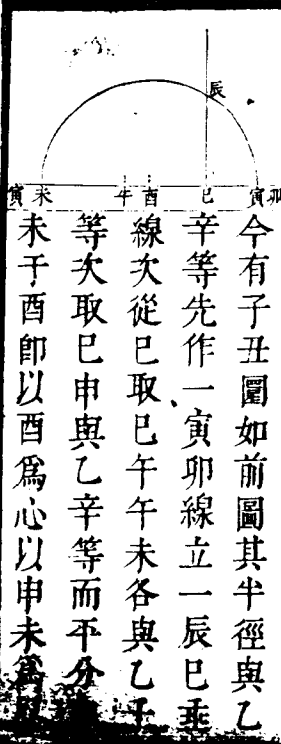 辰
寅 未 午 酉 巳 寅 卯
今有子丑圜如前圖其半徑與乙
辛等先作一寅卯線立一辰巳垂
線次從巳取巳午午未各與乙子
等次取巳申與乙辛等而平分
未于酉卽以酉爲心以申未爲